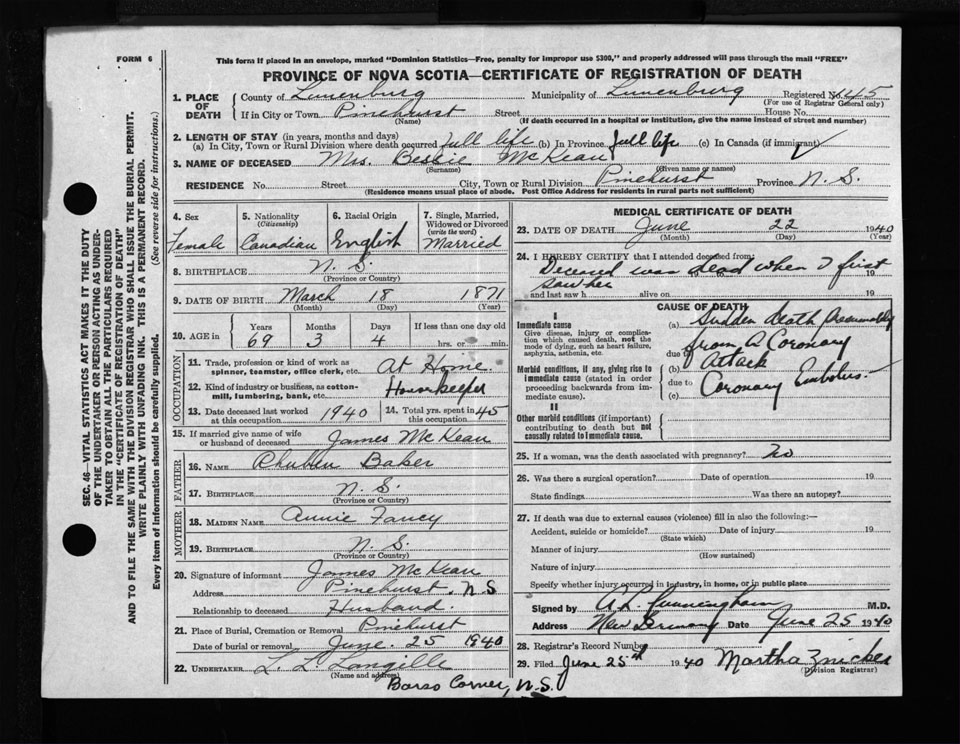 FORM 6
This form if placed in an envelope, marked "Dominion Statistics—Free, penalty for improper use $300," and properly addressed will pass through the mail "FREE"
PROVINCE OF NOVA SCOTIA—CERTIFICATE OF REGISTRATION OF DEATH
1. PLACE OF DEATH County of Lunenburg Municipality of Lunenburg Registered No. 45
(For use of Registrar General only)
If in City or Town Pinehurst Street House No.
(Name) (If death occurred in a hospital or Institution, give the name instead of street and number)
2. LENGTH OF STAY (in years, months and days)
(a) In City, Town or Rural Division where death occurred full life (b) In Province full life (c) In Canada (if immigrant)
3. NAME OF DECEASED Mrs. Bessie McKean
(Surname) (Given name or names)
RESIDENCE No. Street City, Town or Rural Division Pinehurst Province N. S.
(Residence means usual place of abode. Post Office Address for residents in rural parts not sufficient)
SEC. 46—VITAL STATISTICS ACT MAKES IT THE DUTY
OF THE UNDERTAKER OR PERSON ACTING AS UNDER-
TAKER TO OBTAIN ALL THE PARTICULARS REQUIRED
IN THE "CERTIFICATE OF REGISTRATION OF DEATH"
AND TO FILE THE SAME WITH THE DIVISION REGISTRAR WHO SHALL ISSUE THE BURIAL PERMIT.
WRITE PLAINLY WITH UNFADING INK. THIS IS A PERMANENT RECORD.
Every item of Information should be carefully supplied. (See reverse side for instructions.)
4. Sex 5. Nationality (Citizenship) 6. Racial Origin 7. Single, Married, Widowed or Divorced (write the word)
Female Canadian English Married
8. BIRTHPLACE N. S.
(Province or Country)
9. DATE OF BIRTH March 18 1871
(Month) (Day) (Year)
10. AGE in Years Months Days If less than one day old
69 3 4 hrs. or min.
OCCUPATION
11. Trade, profession or kind of work as spinner, teamster, office clerk, etc. At Home
12. Kind of industry or business, as cotton-mill, lumbering, bank, etc. Housekeeper
13. Date deceased last worked at this occupation 1940 14. Total yrs. spent in 45
15. If married give name of wife or husband of deceased James McKean
FATHER
16. Name Baker
17. Birthplace N. S.
(Province or Country)
MOTHER
18. Maiden Name Annie Fancy
19. Birthplace N. S.
(Province or Country)
20. Signature of informant James McKean
Address Pinehurst, N S
Relationship to deceased Husband.
21. Place of Burial, Cremation or Removal Pinehurst
Date of burial or removal June. 25 1940
22. UNDERTAKER L. L. Langille
(Name and address)
Barss Corner, N.S.
MEDICAL CERTIFICATE OF DEATH
23. DATE OF DEATH June 22 1940
(Month) (Day) (Year)
24. I HEREBY CERTIFY that I attended deceased from:
Deceased was dead when I first 19
saw her 19
and last saw h alive on 19
CAUSE OF DEATH
I
Immediate cause
Give disease, injury or complication which caused death, not the mode of dying, such as heart failure, asphyxia, asthenia, etc.
(a) Sudden death presumably
from a Coronary
due to
Attack
Morbid conditions, if any, giving rise to immediate cause (stated in order proceeding backwards from immediate cause).
(b)
due to Coronary Embolus.
(c)
II
Other morbid conditions (if important) contributing to death but not causally related to immediate cause.
25. If a woman, was the death associated with pregnancy? No
26. Was there a surgical operation? Date of operation 19
State findings Was there an autopsy?
27. If death was due to external causes (violence) fill in also the following:—
Accident, suicide or homicide? Date of injury 19
(State which)
Manner of injury
(How sustained)
Nature of injury
Specify whether injury occurred in industry, in home, or in public place
Signed by Cunningham M.D.
Address New Germany Date June 25 1940
28. Registrar's Record Number
29. Filed June 25th 1940 Martha Zwicker
(Division Registrar)